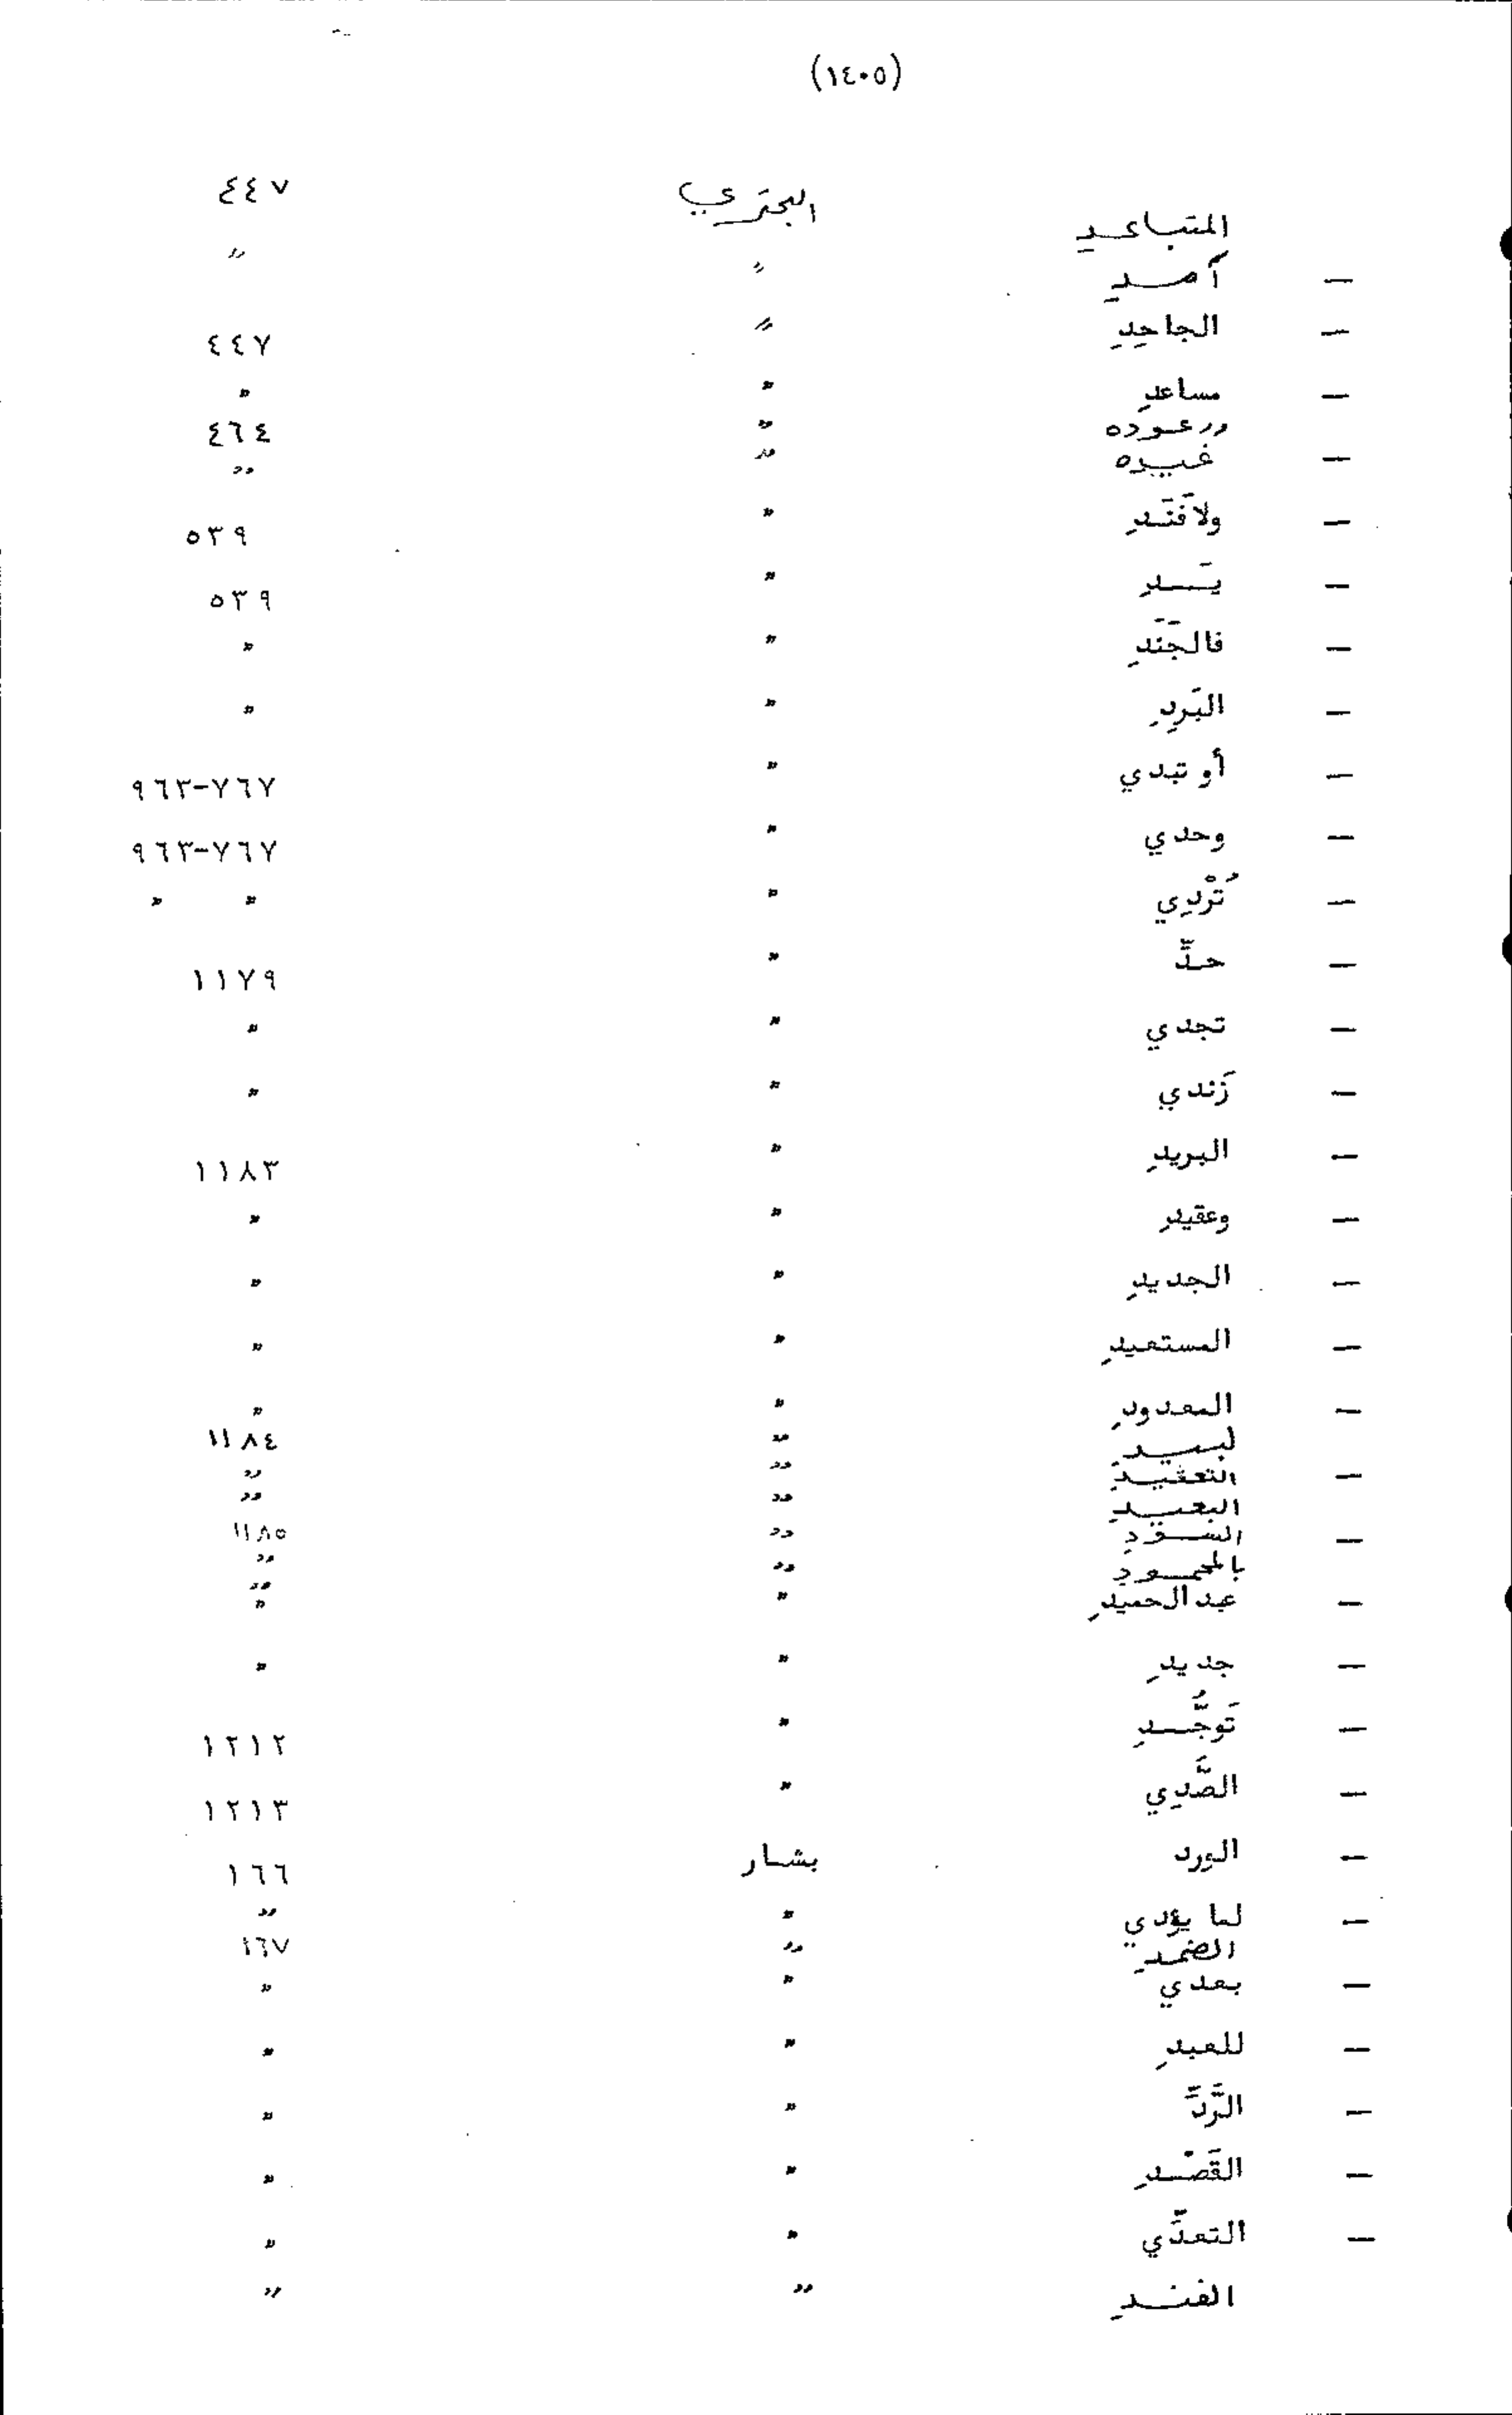 (١٤٠٥)
المتباعدِ البحتري ٤٤٧
— آمدِ " "
— الجاحِدِ " ٤٤٧
— مساعدِ " "
ورعوده " ٤٦٤
— غيده " "
— ولا فَنَدِ " ٥٣٩
— يَــدِ " ٥٣٩
— فالجَنَدِ " "
— البَردِ " "
— أو تبدي " ٧٦٧-٩٦٣
— وحدي " ٧٦٧-٩٦٣
— تُرْدِي " " "
— حدِّ " ١١٧٩
— تجدي " "
— زَندي " "
— البريدِ " ١١٨٣
— وعقيدِ " "
— الجديدِ " "
— المستعيدِ " "
— المعدودِ " "
لبيــدِ " ١١٨٤
— التعقيدِ " "
البعيــدِ " "
— السودِ " ١١٨٥
بالمحمودِ " "
— عبد الحميدِ " "
"
— جديدِ " "
— تَوجُّــدِ " ١٢١٢
— الصَّدِي " ١٢١٣
— الورد بشار ١٦٦
— لما يؤدي " "
الضمدِ " ١٦٧
— بعدي " "
— للعبدِ " "
— الرَّدِّ " "
— القَصْدِ " "
— التعدِّي " "
الفندِ " "